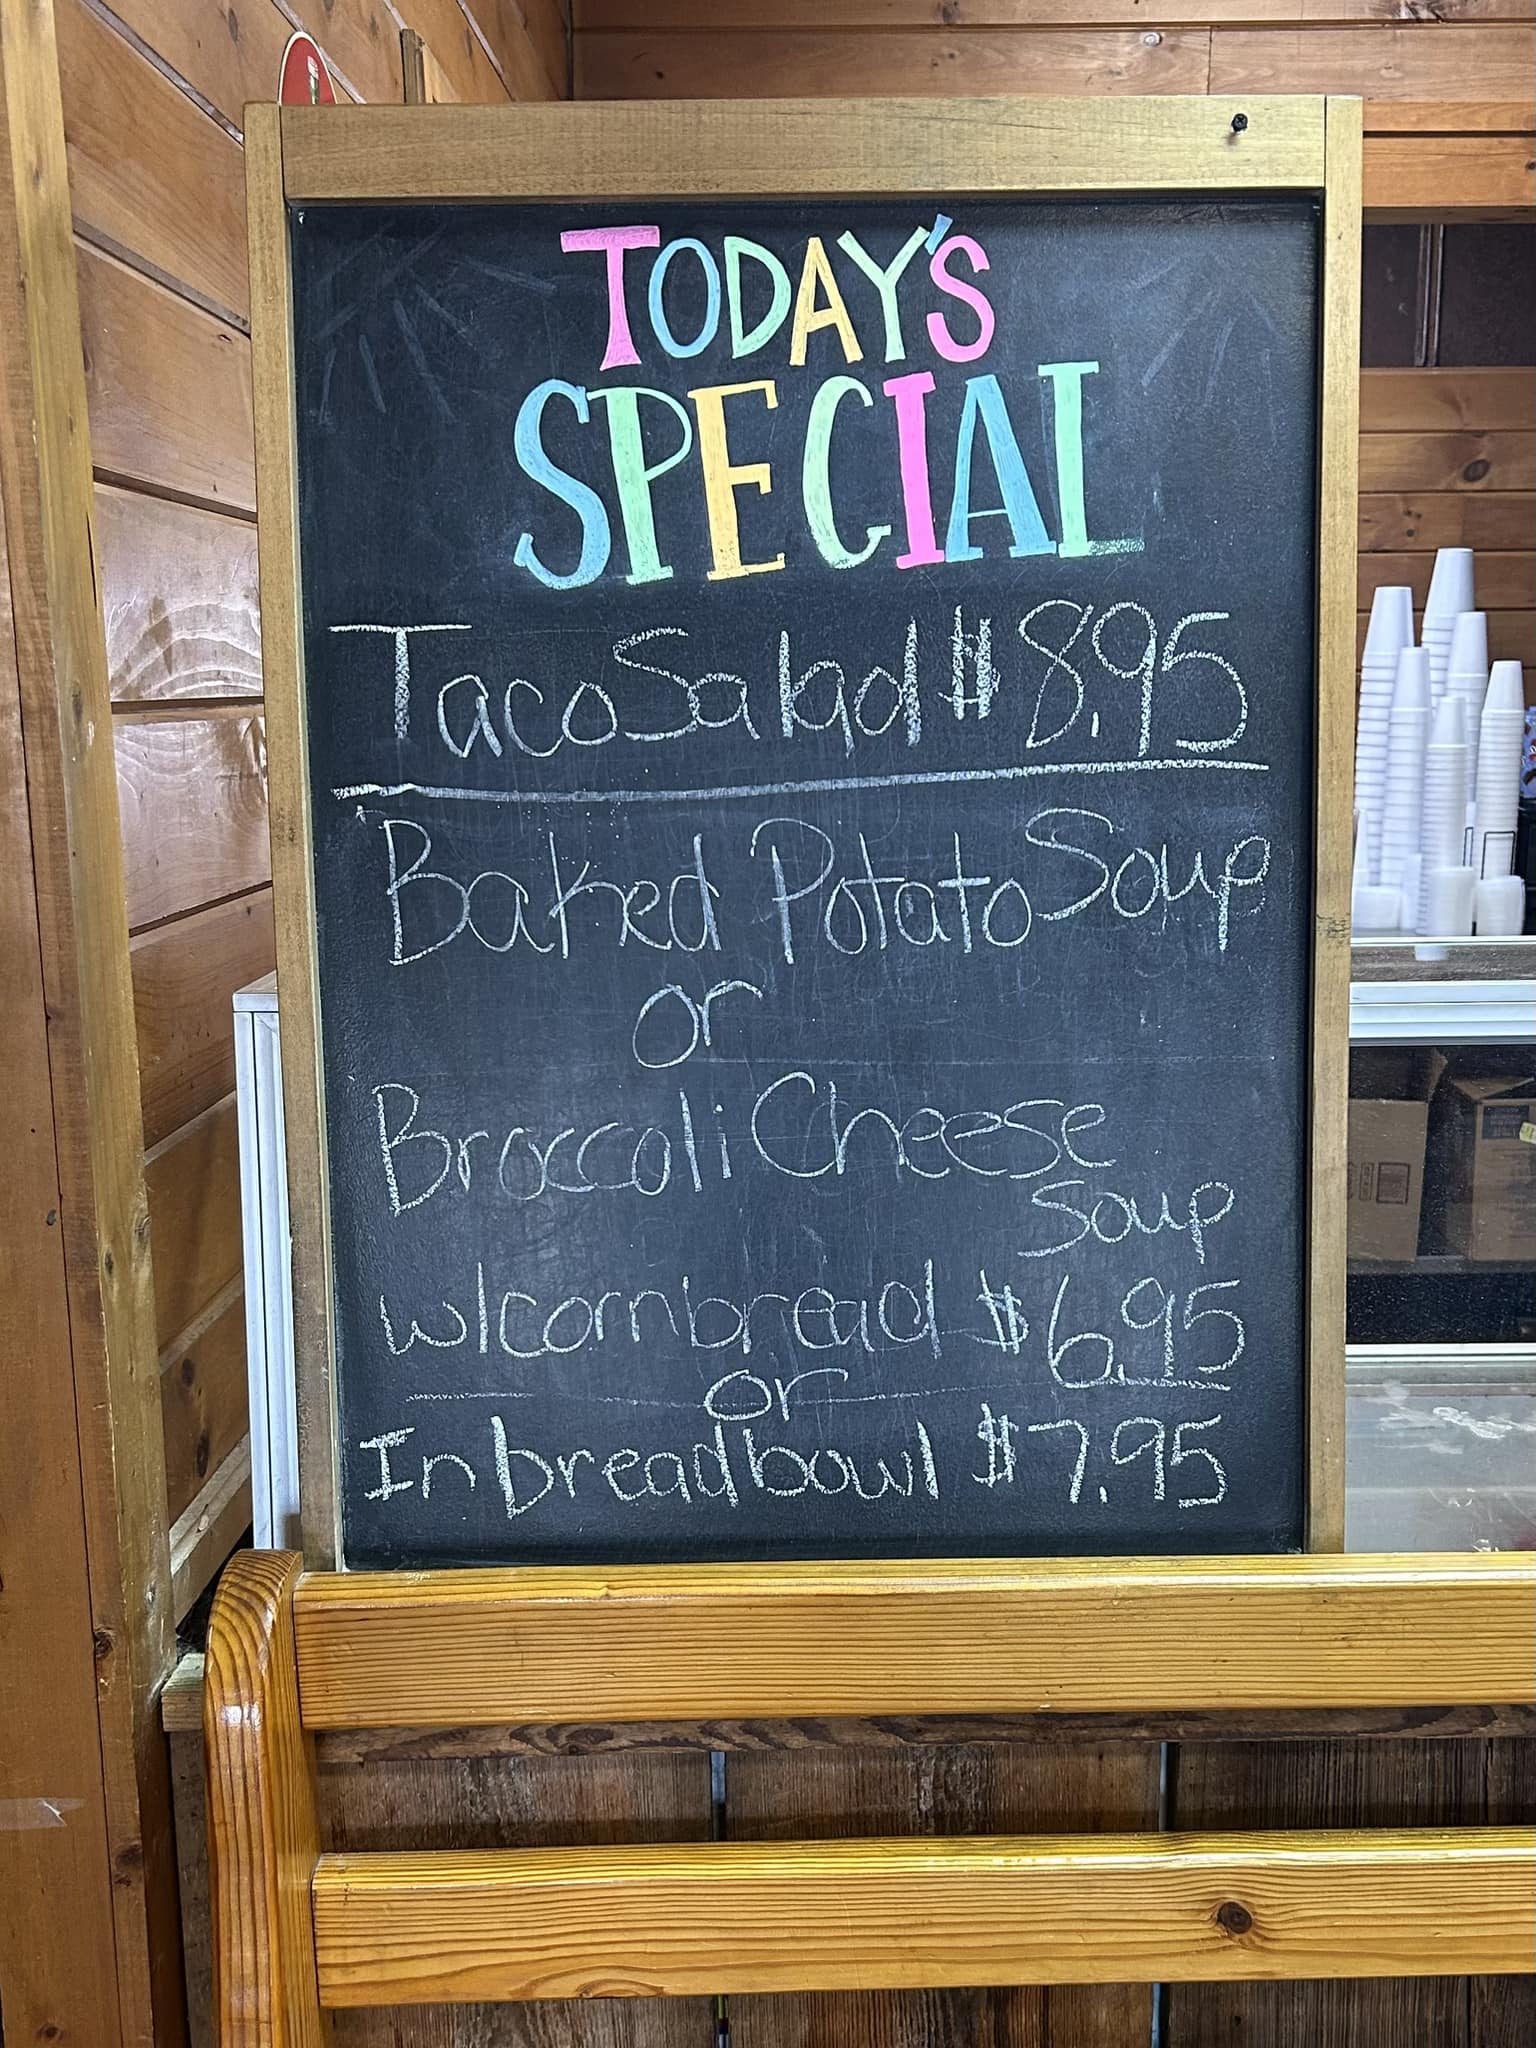 TODAY'S
SPECIAL
Taco Salad $8.95
Baked Potato Soup
or
Broccoli Cheese
Soup
w/cornbread $6.95
or
In breadbowl $7.95